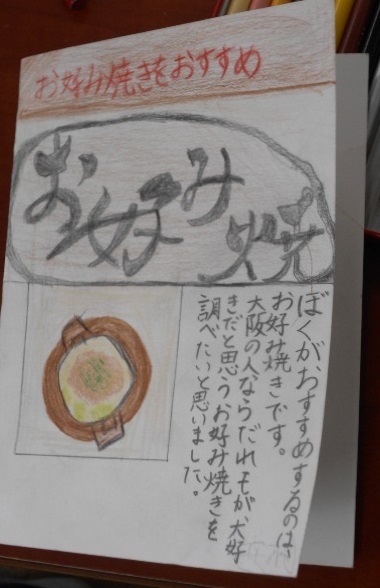 お好み焼きをおすすめ
お好み焼
ぼくが、おすすめするのは、
お好み焼きです。
大阪の人ならだれモが、大好
きだと思うお好み焼きを
調べたいと思いました。